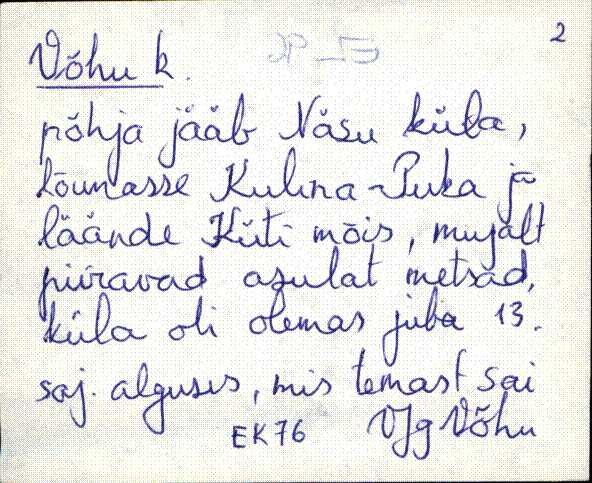 2
Võhu k.
põhja jääb Näsu küla,
lõunasse Kulina-Puka ja
läände Küti mõis, mujalt
piiravad asulat metsad,
küla oli olemas juba 13.
saj. alguses, mis temast sai
EK76 VJg Võhu